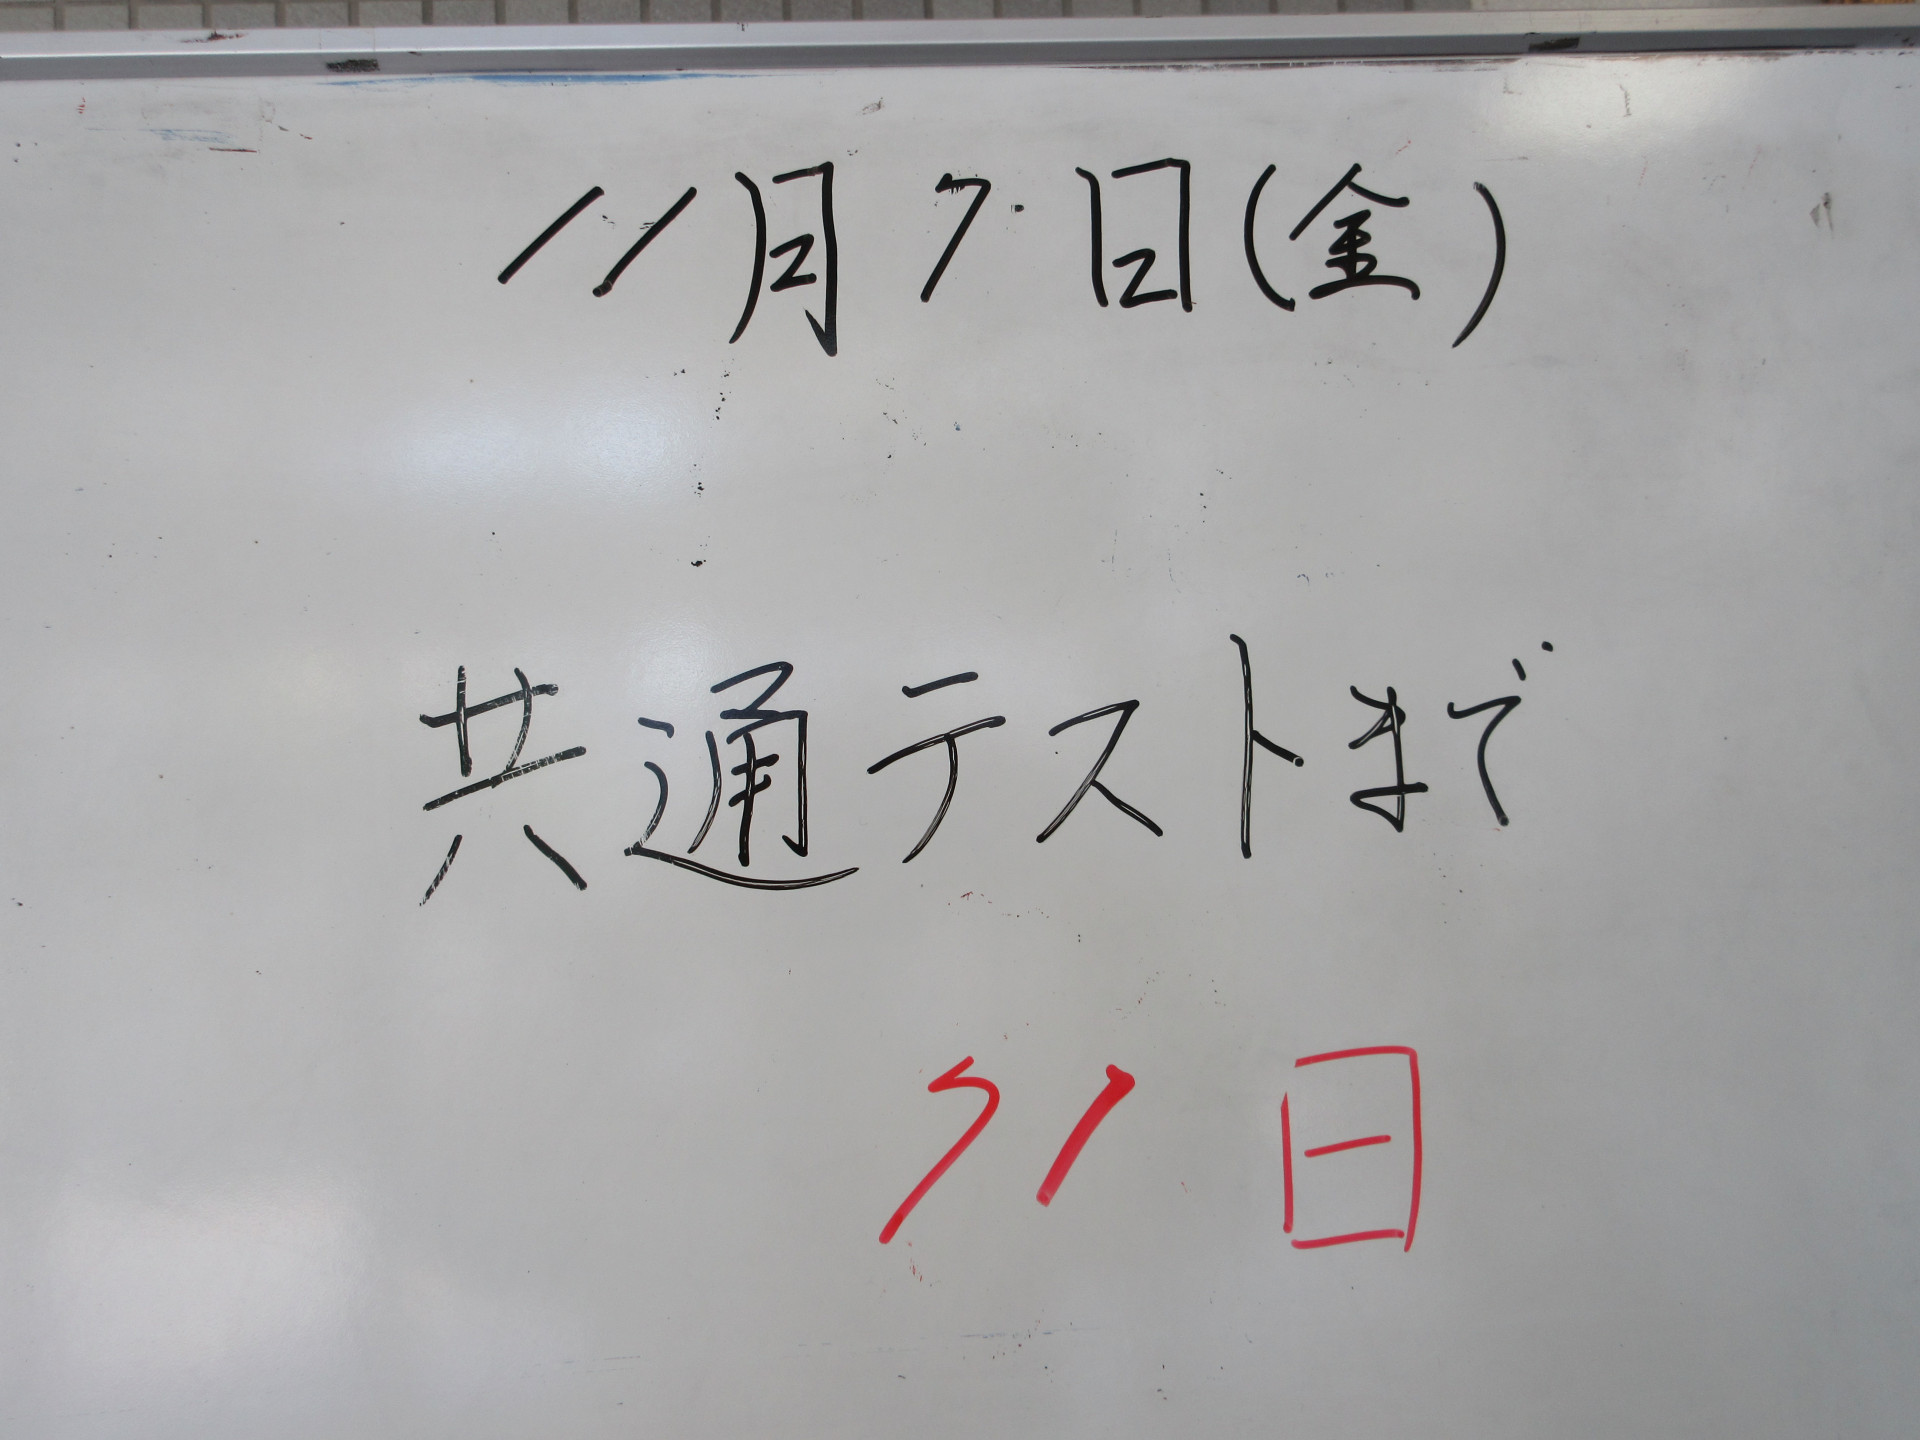 11月7日(金)
共通テストまで
71日